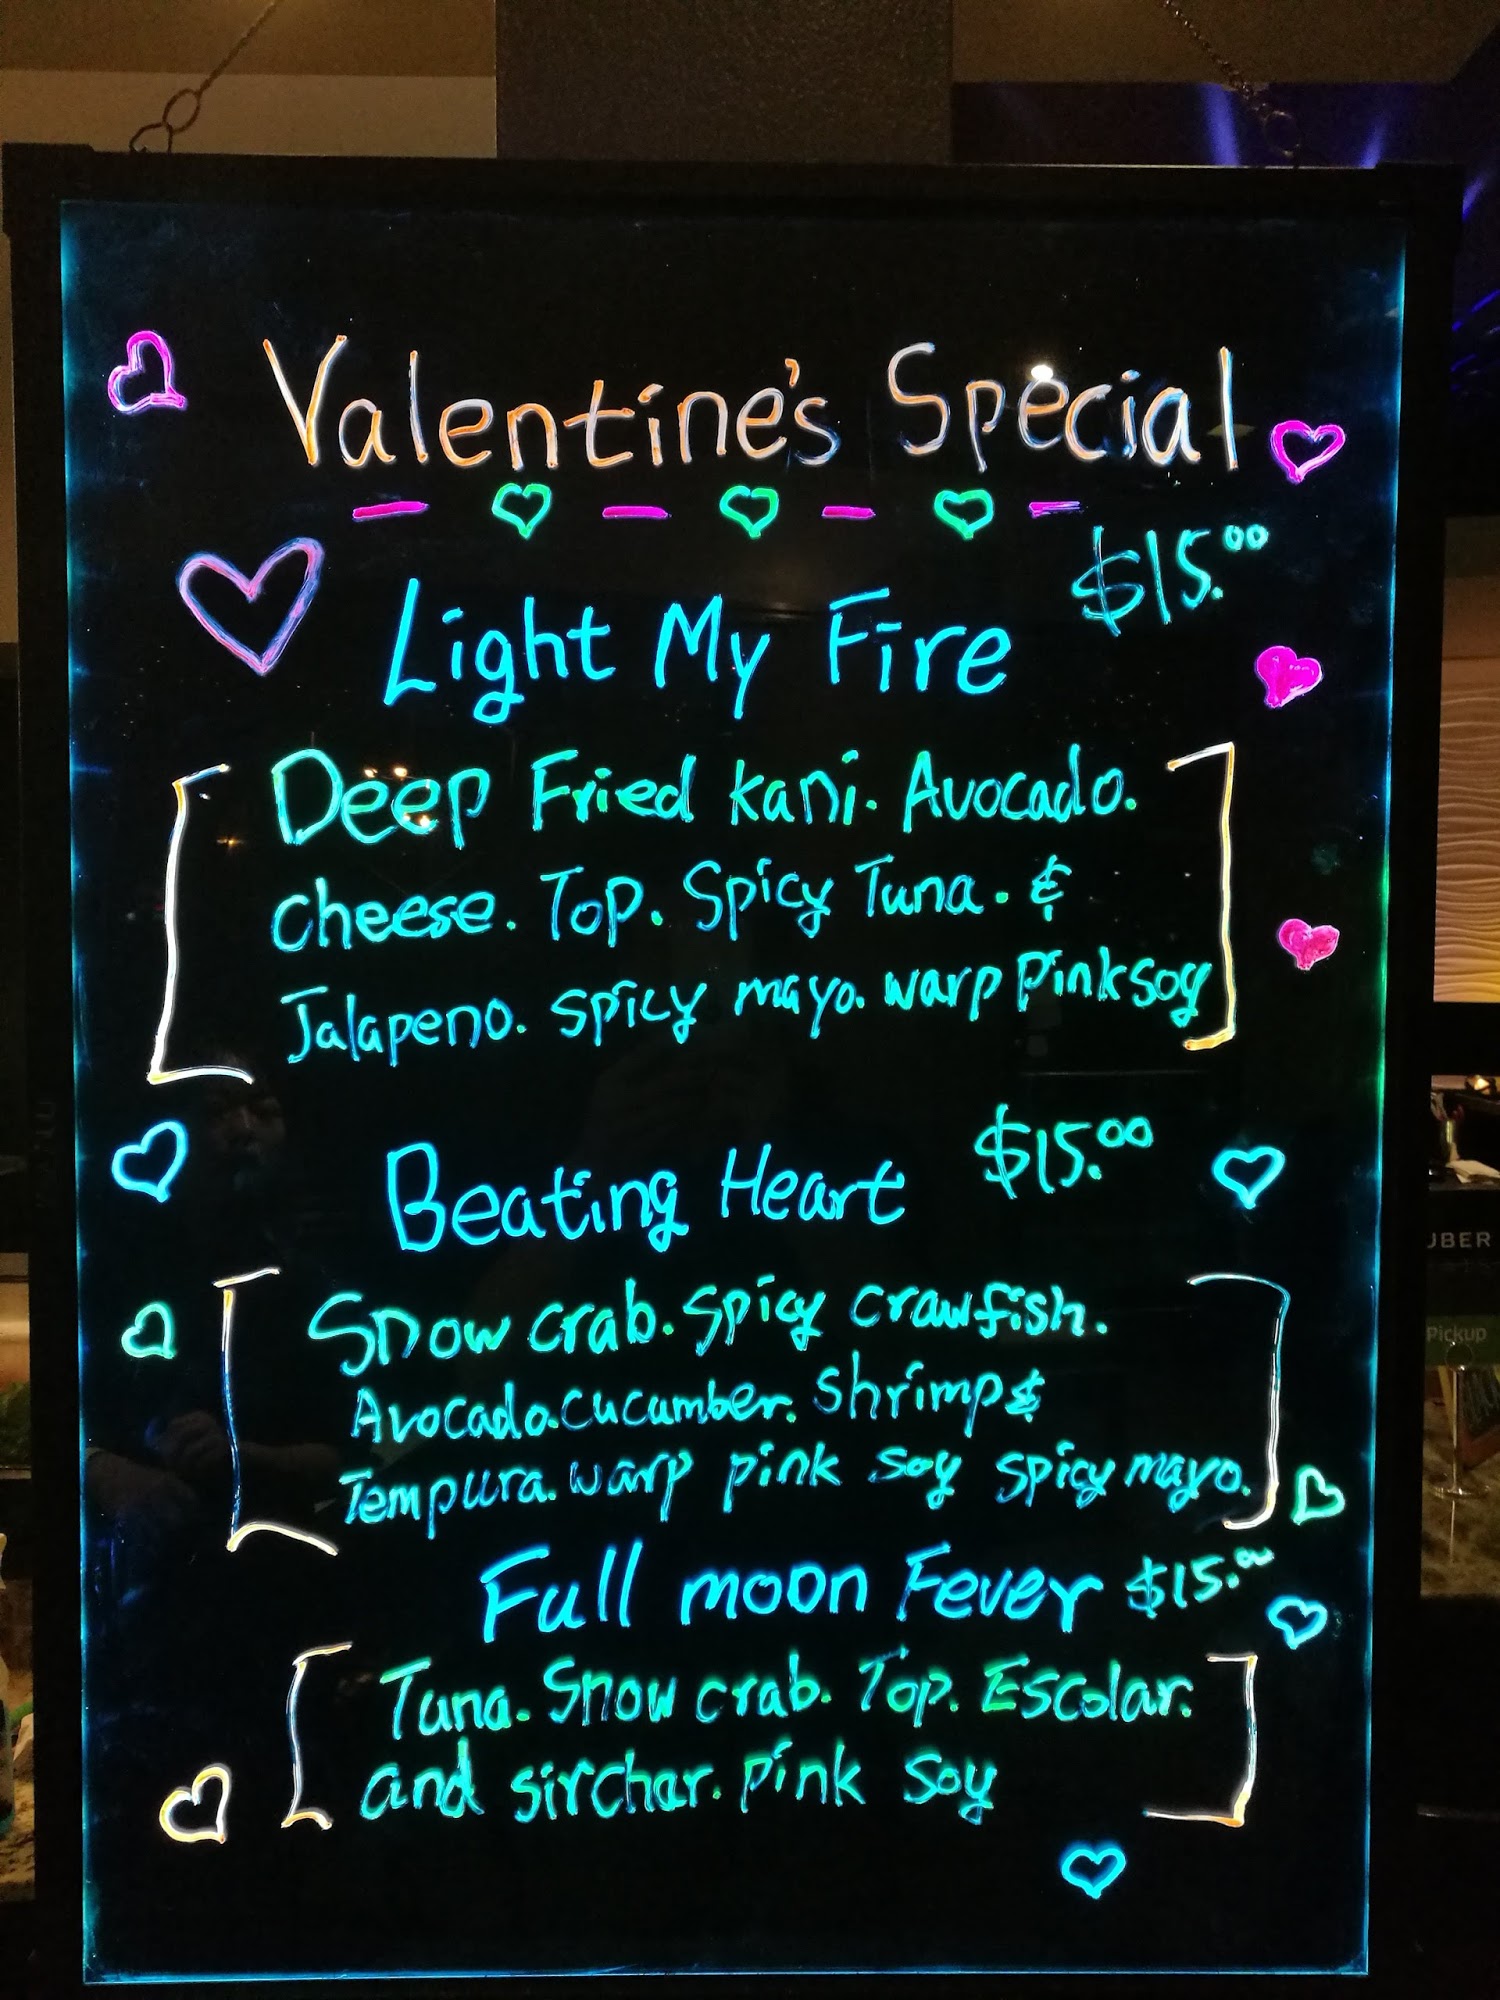 Valentine's Special
$15.00
Light My Fire
Deep Fried kani. Avocado.
cheese. Top. Spicy Tuna. &
Jalapeno. spicy mayo. warp Pink soy
$15.00
Beating Heart
Snow crab. Spicy crawfish.
Avocado. cucumber. shrimp &
Tempura. warp pink soy spicy mayo.
Full moon Fever $15.00
Tuna. Snow crab. Top. Escolar.
and sirchar. pink soy
UBER
Pickup